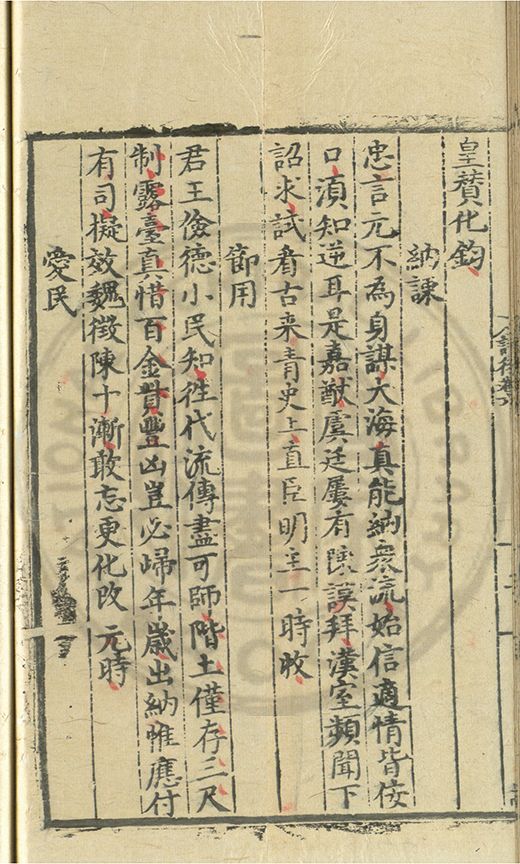 皇贊化鈞
納諌
忠言元不為身謀大海真能納衆流始信適情皆佞
口湏知逆耳是嘉猷虞廷屢有陳謨拜漢室頻聞下
詔求試看古来青史上直臣明主一時收
節用
君王儉德小民知徃代流傳盡可師階土僅存三尺
制露臺真惜百金貲豐凶豈必歸年歲出納惟應付
有司擬效魏徵陳十漸敢忘更化改 元時
愛民